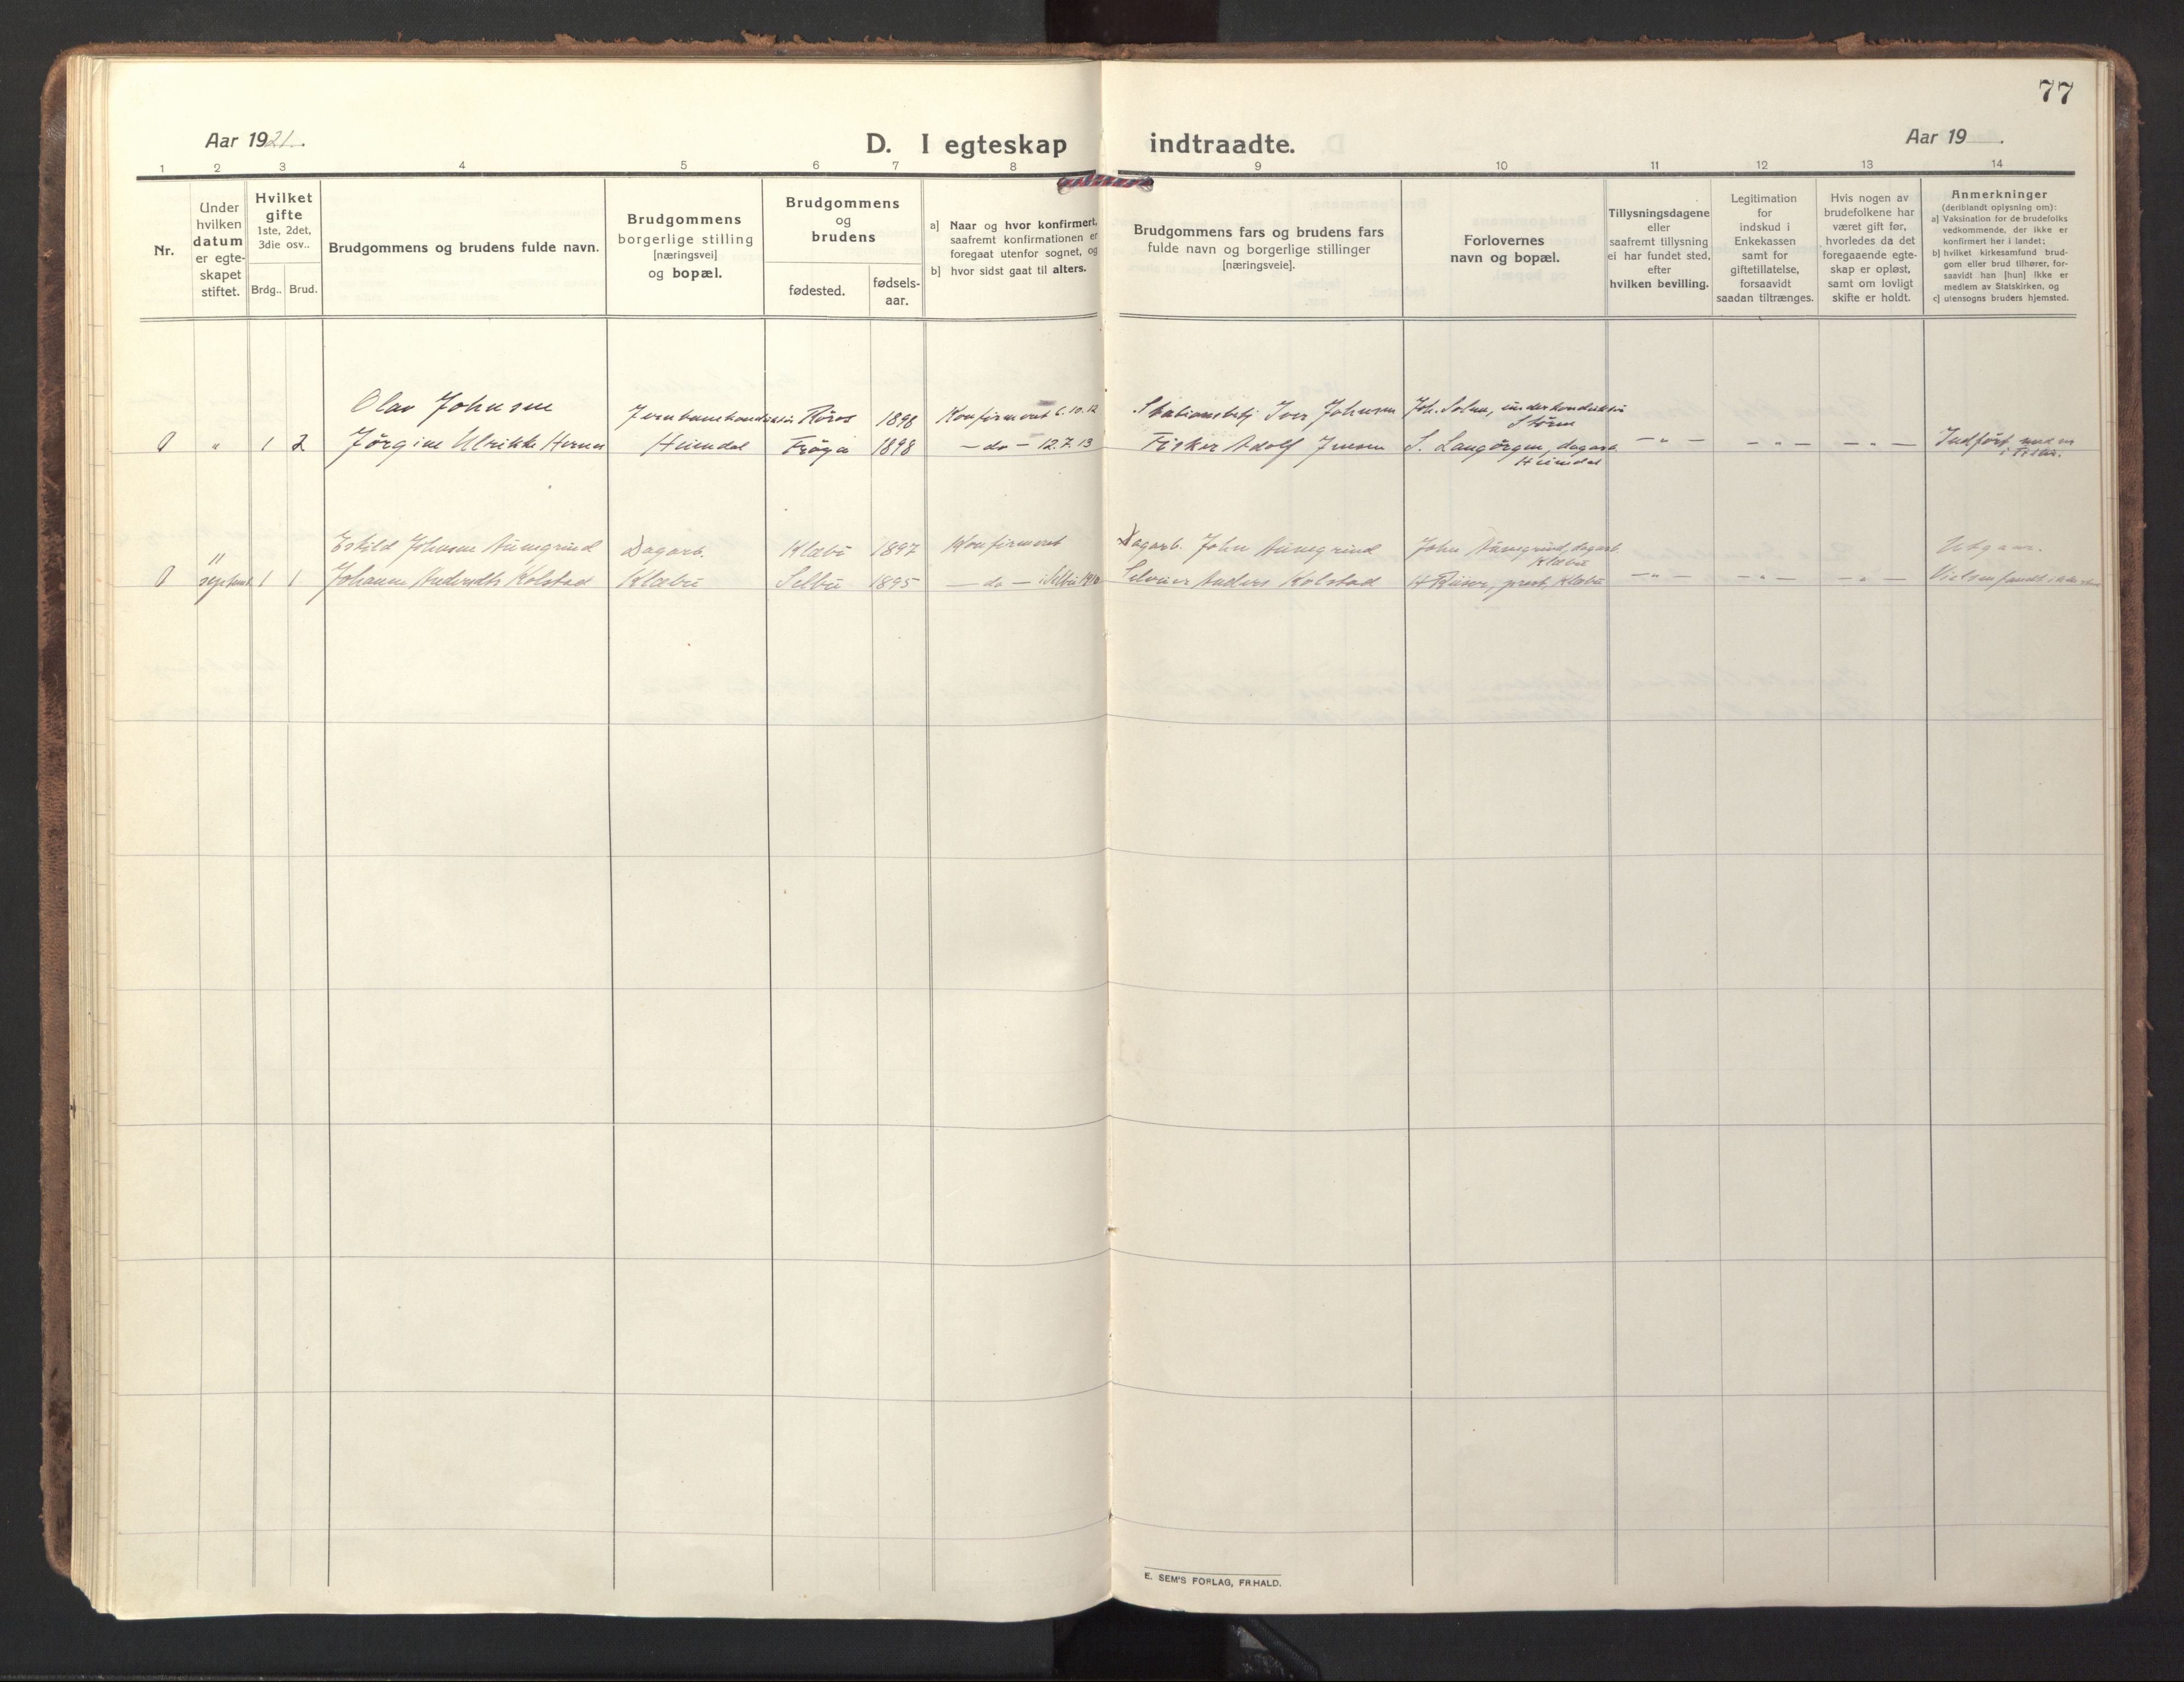 77
Aar 1921.
D. I egteskap indtraadte.
Aar 19 .
1 2 3 4 5 6 7 8 9 10 11 12 13 14
Nr.
Under
hvilken
datum
er egte-
skapet
stiftet.
Hvilket
gifte
1ste, 2det,
3die osv..
Brdg.. Brud.
Brudgommens og brudens fulde navn.
Brudgommens
borgerlige stilling
[næringsvei]
og bopæl.
Brudgommens
og
brudens
fødested.
fødsels-
aar.
a] Naar og hvor konfirmert,
saafremt konfirmationen er
foregaat utenfor sognet, og
b] hvor sidst gaat til alters.
Brudgommens fars og brudens fars
fulde navn og borgerlige stillinger
[næringsveie].
Forlovernes
navn og bopæl.
Tillysningsdagene
eller
saafremt tillysning
ei har fundet sted,
efter
hvilken bevilling.
Legitimation
for
indskud i
Enkekassen
samt for
giftetillatelse,
forsaavidt
saadan tiltrænges.
Hvis nogen av
brudefolkene har
været gift før,
hvorledes da det
foregaaende egte-
skap er opløst,
samt om lovligt
skifte er holdt.
Anmerkninger
(deriblandt oplysning om):
a] Vaksination for de brudefolks
vedkommende, der ikke er
konfirmert her i landet;
b] hvilket kirkesamfund brud-
gom eller brud tilhører, for-
saavidt han [hun] ikke er
medlem av Statskirken, og
c] utensogns bruders hjemsted.
Olav Johnsen Jernbanekonduktør Røros 1898 Konfirmeret 6.10.12 Stationsbetj Iver Johnsen Joh. Solem, underkonduktør
Støren
0 " 1 2 Jørgine Ulrikke Hernes Heimdal Frøya 1898 — do — 12.7.13 Fisker Adolf Jensen S. Langørgen, dagarb. — " — — " — — " — Indført
Heimdal
11 Eskild Johnsen Aunegrind Dagarb. Klæbu 1897 Konfirmeret Dagarb. John Aunegrind John Aunegrind, dagarb. Utgaar.
Klæbu
0 septemb. 1 1 Johanne Andersdtr Kolstad Klæbu Selbu 1895 — do — i Selbu 1910 Selveier Anders Kolstad H Riiser, prest, Klæbu — " — — " — — " — Vielsen fandt
E. SEM'S FORLAG, FR.HALD.